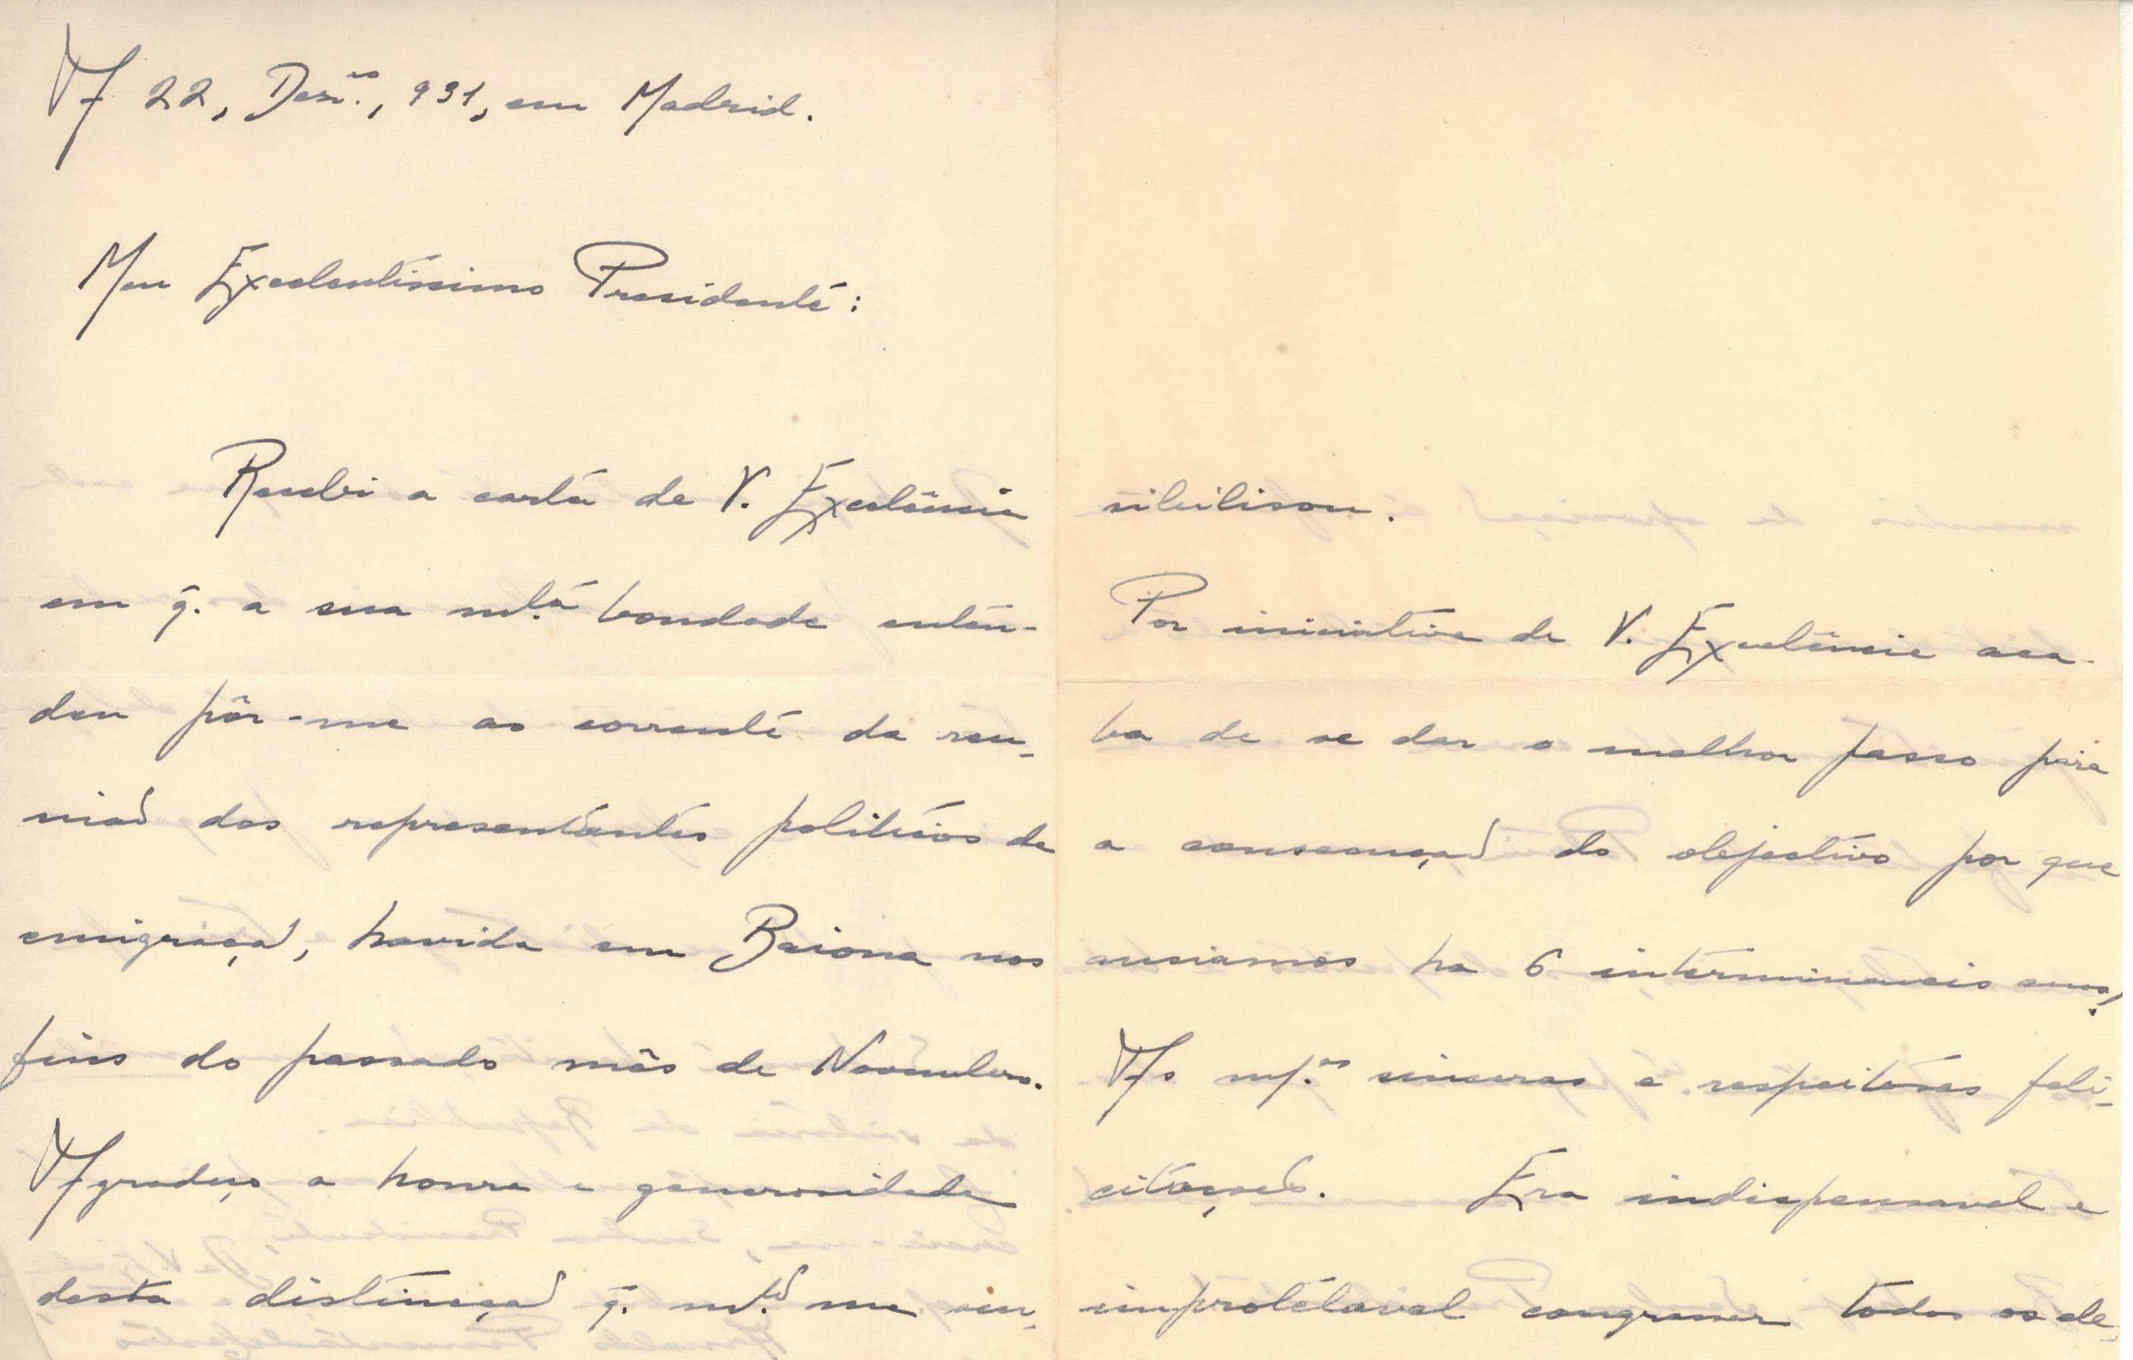 A 22, Dezº., 931, em Madrid.
Meu Excelentíssimo Presidente:
Recebi a carta de V. Excelência
em q̃. a sua mt.ª bondade enten-
deu pôr-me ao corrente da reu-
nião dos representantes politicos da
emigração, havida em Baiona nos
fins do passado mês de Novembro.
Agradeço a honra e generosidade
desta distinção q̃. mt.º me sen-
sibilisou.
Por iniciativa de V. Excelência aca-
ba de se dar o melhor passo para
a consecução do objectivo por que
ansiamos ha 6 interminaveis anos!
As mª.s sinceras e respeitosas feli-
citações. Era indispensavel e
improtelavel congraçar todos os de-